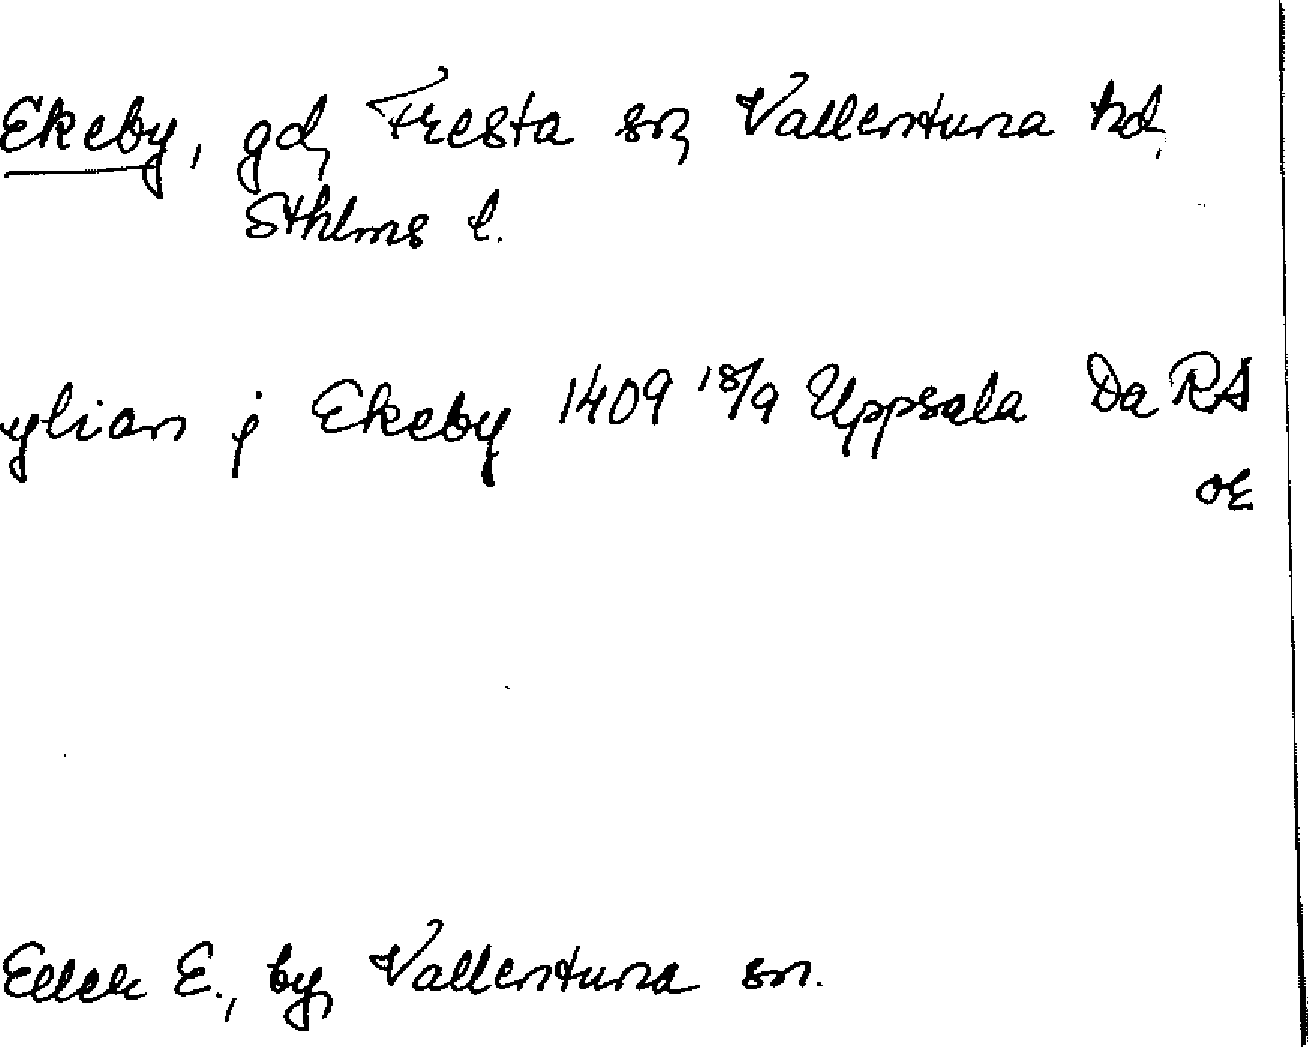 Ekeby, gd, Fresta sn, Vallentuna hd,
Sthlms l.
ylian j Ekeby 1409 18/9 Uppsala Da RA
oE
Eller E., by, Vallentuna sn.